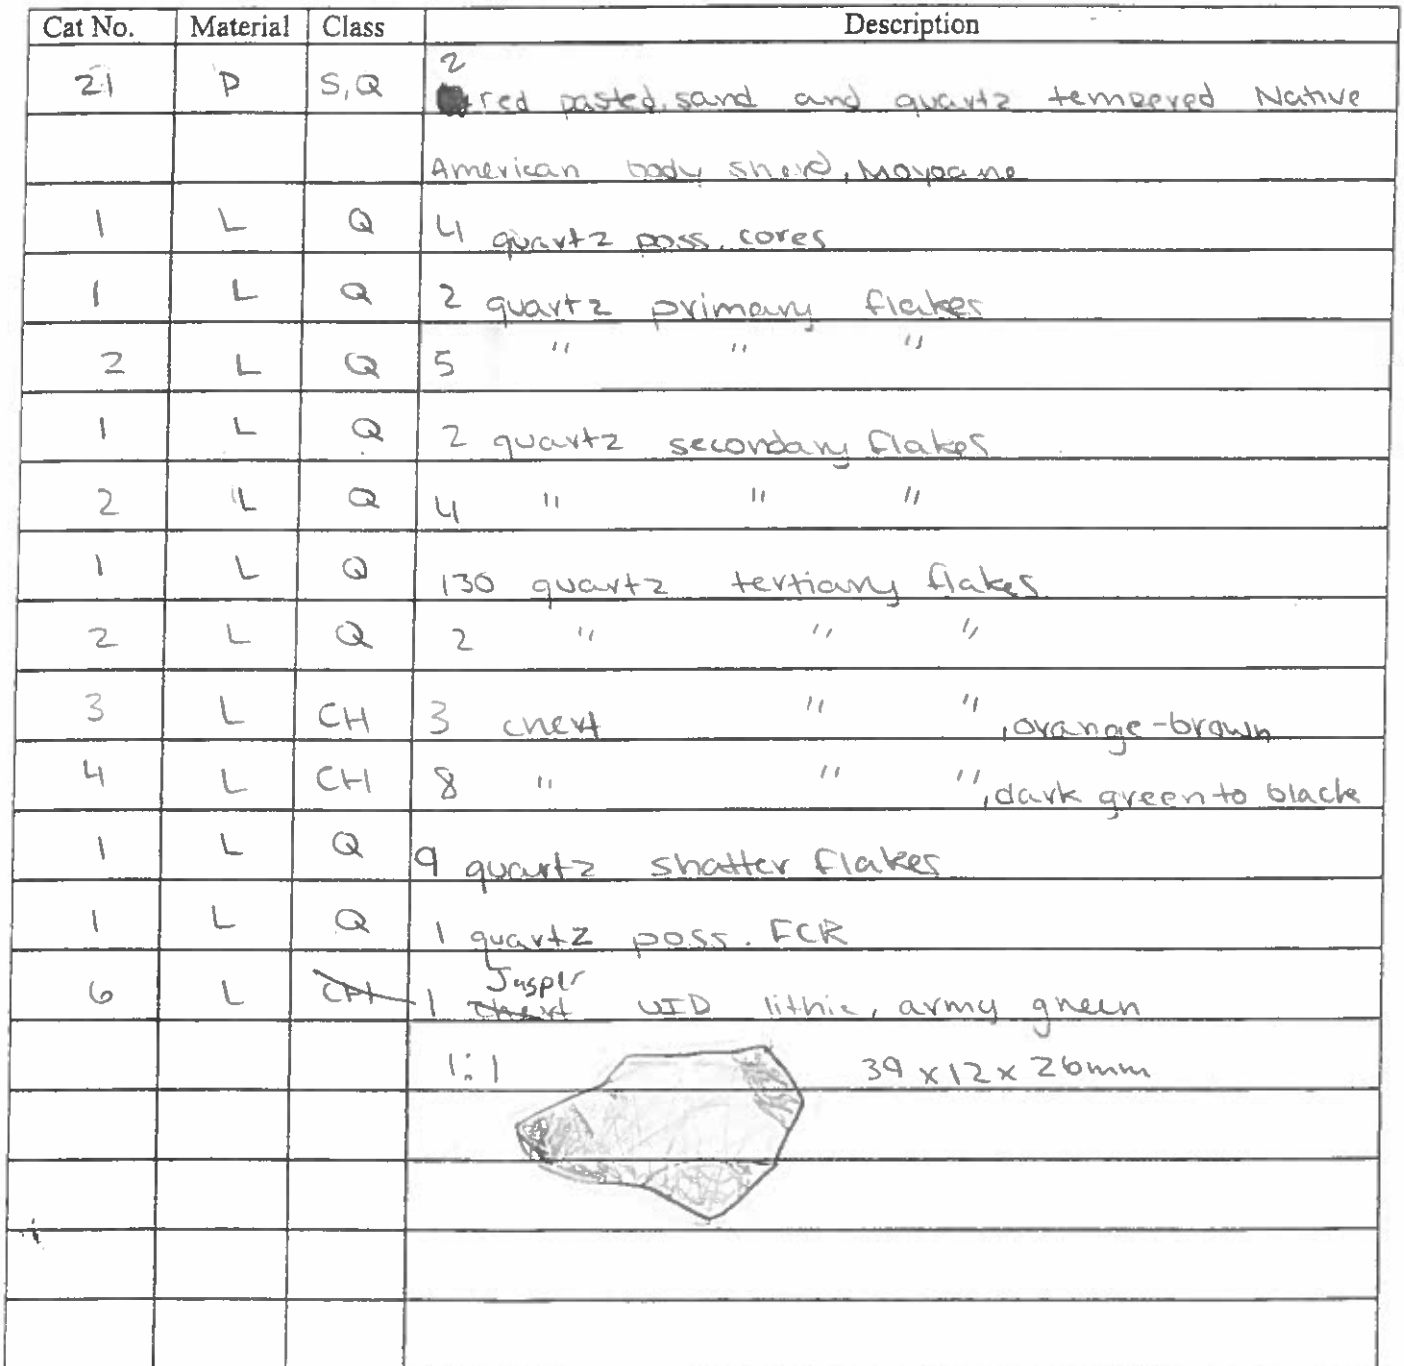 Cat No. Material Class Description
2
21 P S, Q red pasted, sand and quartz tempered Native
American body sherd, Moyaone
1 L Q 4 quartz poss. cores
1 L Q 2 quartz primary flakes
2 L Q 5 " " "
1 L Q 2 quartz secondary flakes
2 L Q 4 " " "
1 L Q 130 quartz tertiary flakes
2 L Q 2 " " "
3 L CH 3 chert " ", orange-brown
4 L CH 8 " " ", dark green to black
1 L Q 9 quartz shatter flakes
1 L Q 1 quartz poss. FCR
Jasper
6 L CH 1 Chert UID lithic, army green
1:1 39 x 12 x 26mm